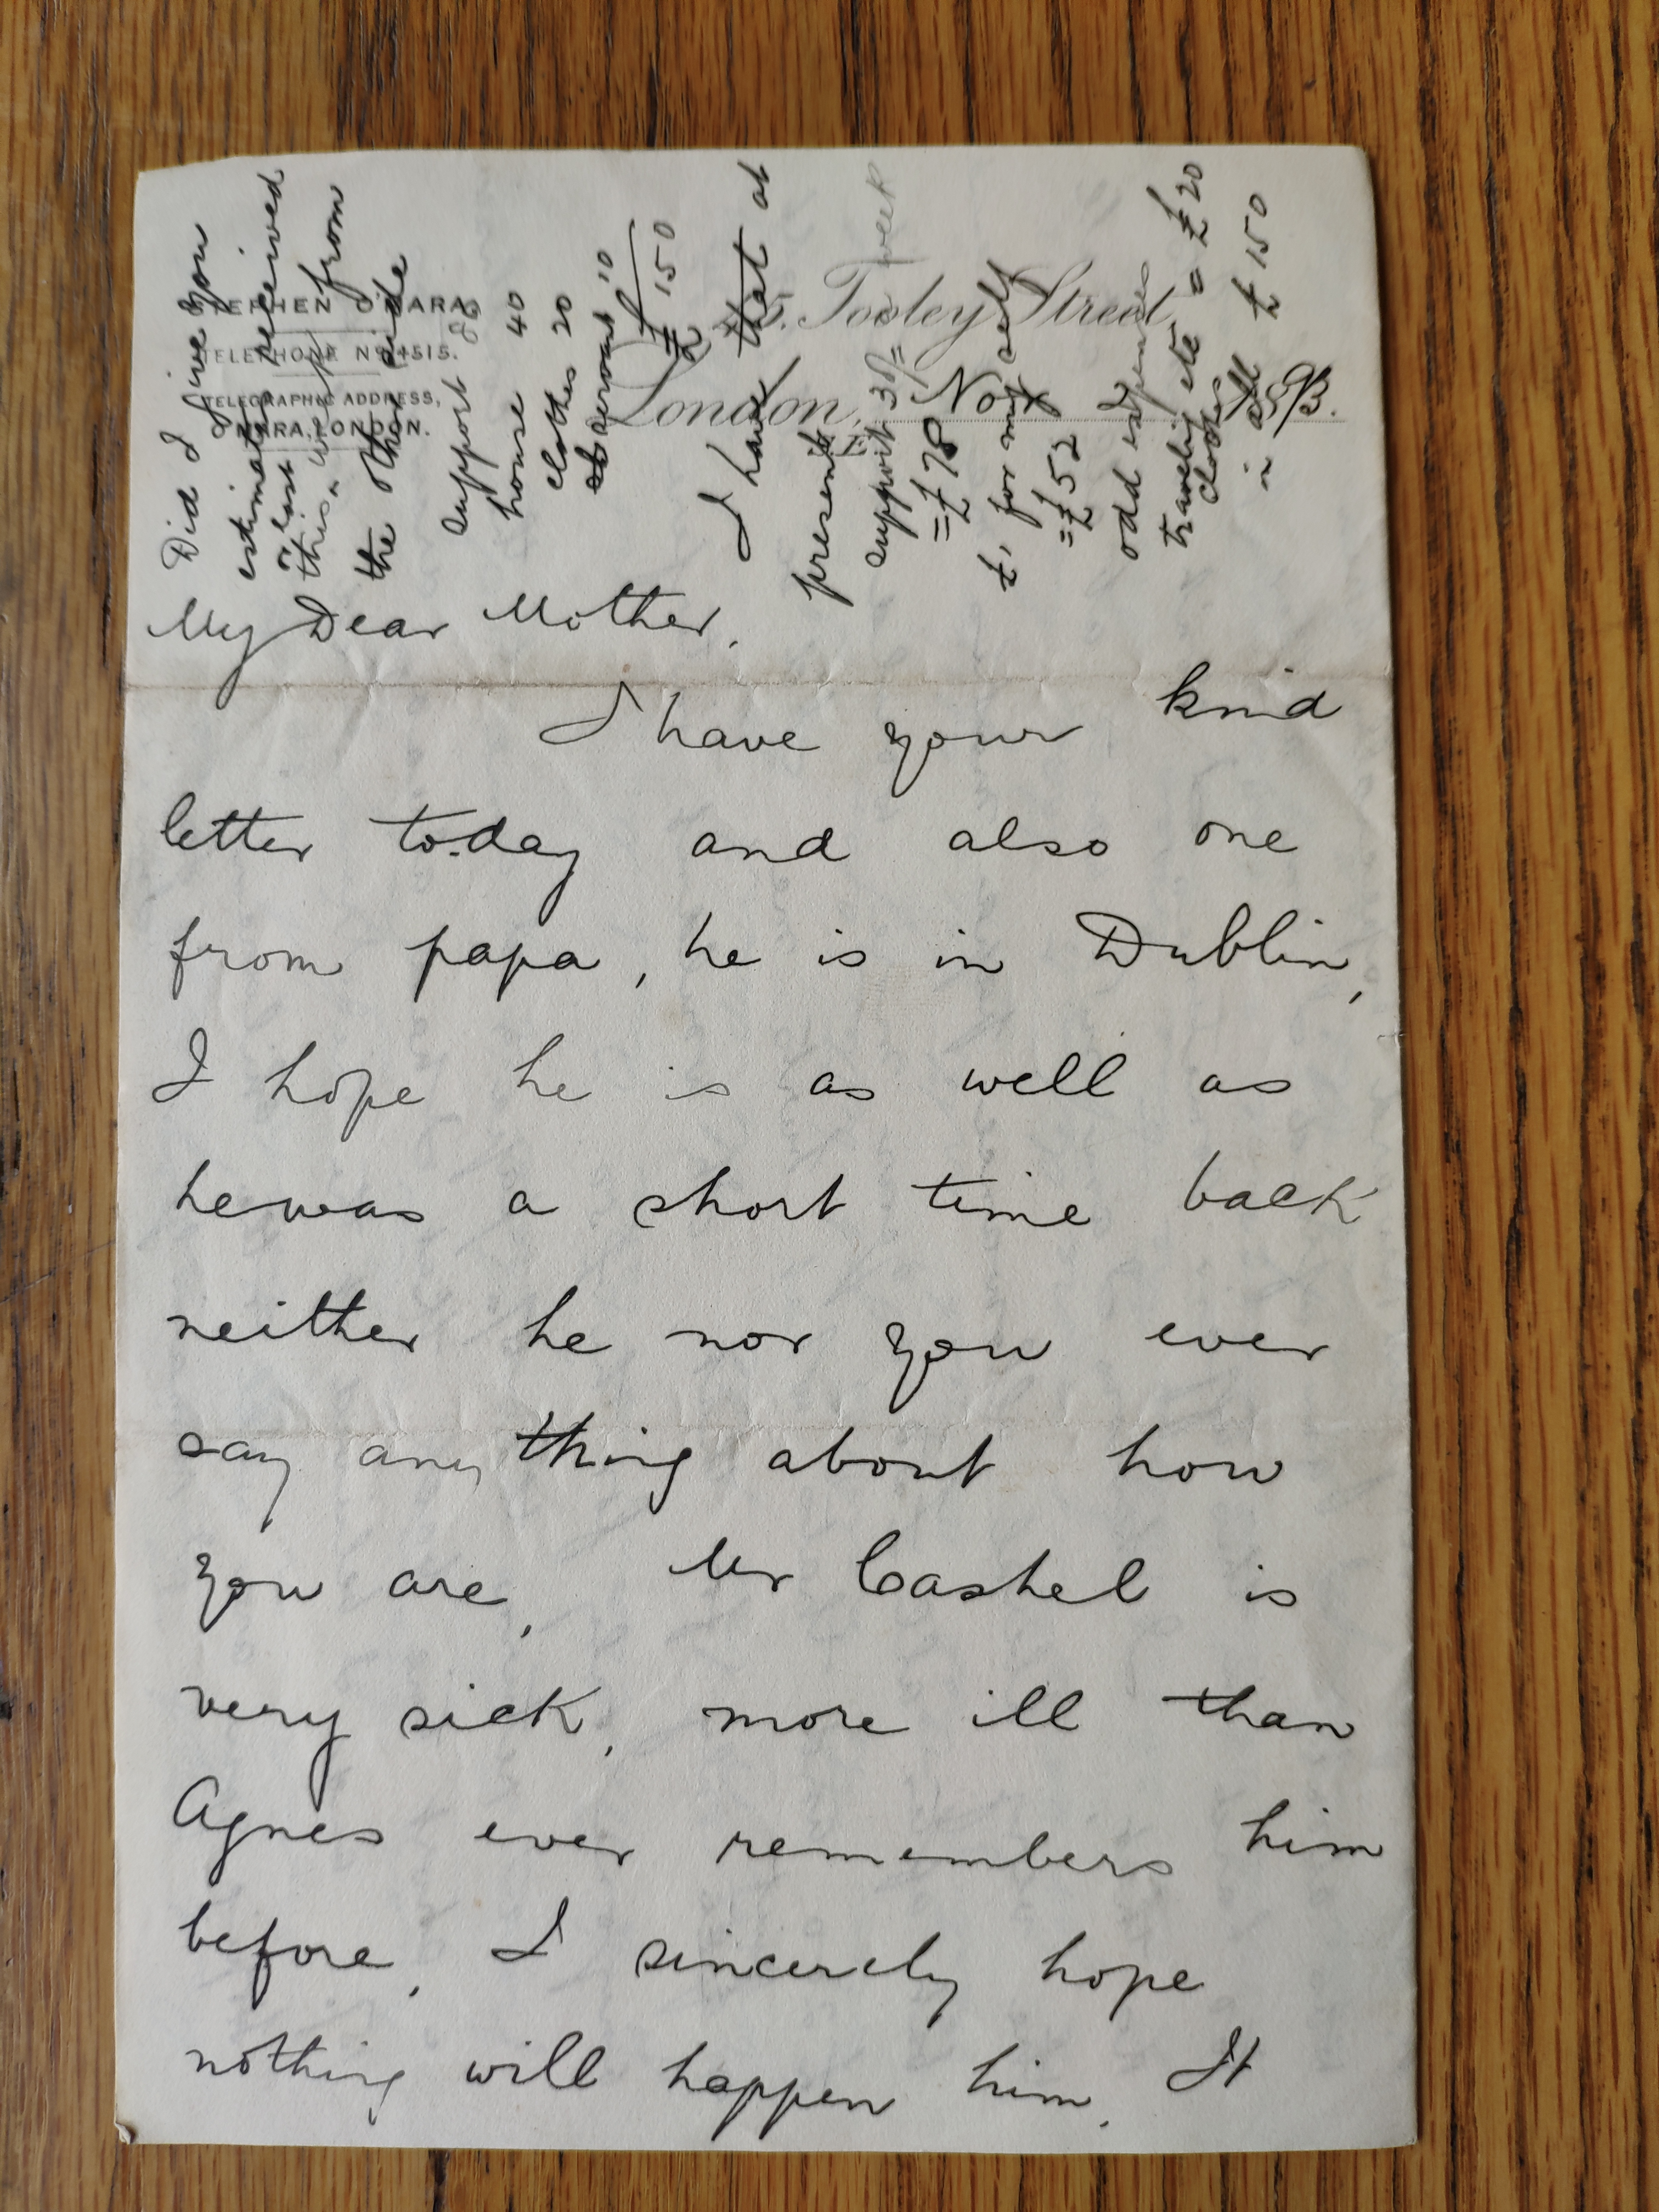 STEPHEN O'MARA.
TELEPHONE No 4515.
TELEGRAPHIC ADDRESS,
O'MARA, LONDON.
45. Tooley Street,
London, Nov 1893.
Did I give you
estimate received
last
this from
the other side
support 80
house 40
clothes 20
servant 10
£150
I have that at
present
support 30/= week
= £78
£1 for myself
= £52
odd expenses
traveling etc = £20
clothes
in all £150
My Dear Mother,
I have your kind
letter to.day and also one
from papa, he is in Dublin,
I hope he is as well as
he was a short time back
neither he nor you ever
say any thing about how
you are, Mr Cashel is
very sick, more ill than
Agnes ever remembers him
before, I sincerely hope
nothing will happen him. It